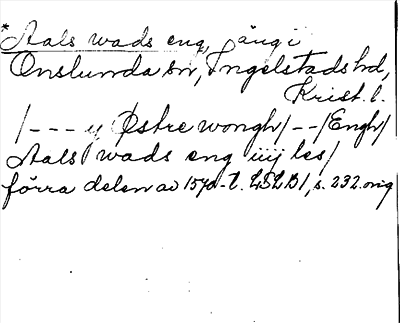 *Aals wads eng, äng i
Onslunda sn, Ingelstads hd,
Krist. l.
/--- y Østre wongh/--/Engh/
Aals wads eng iiij les/
förra delen av 1570-t. LSLB1, s. 232. orig